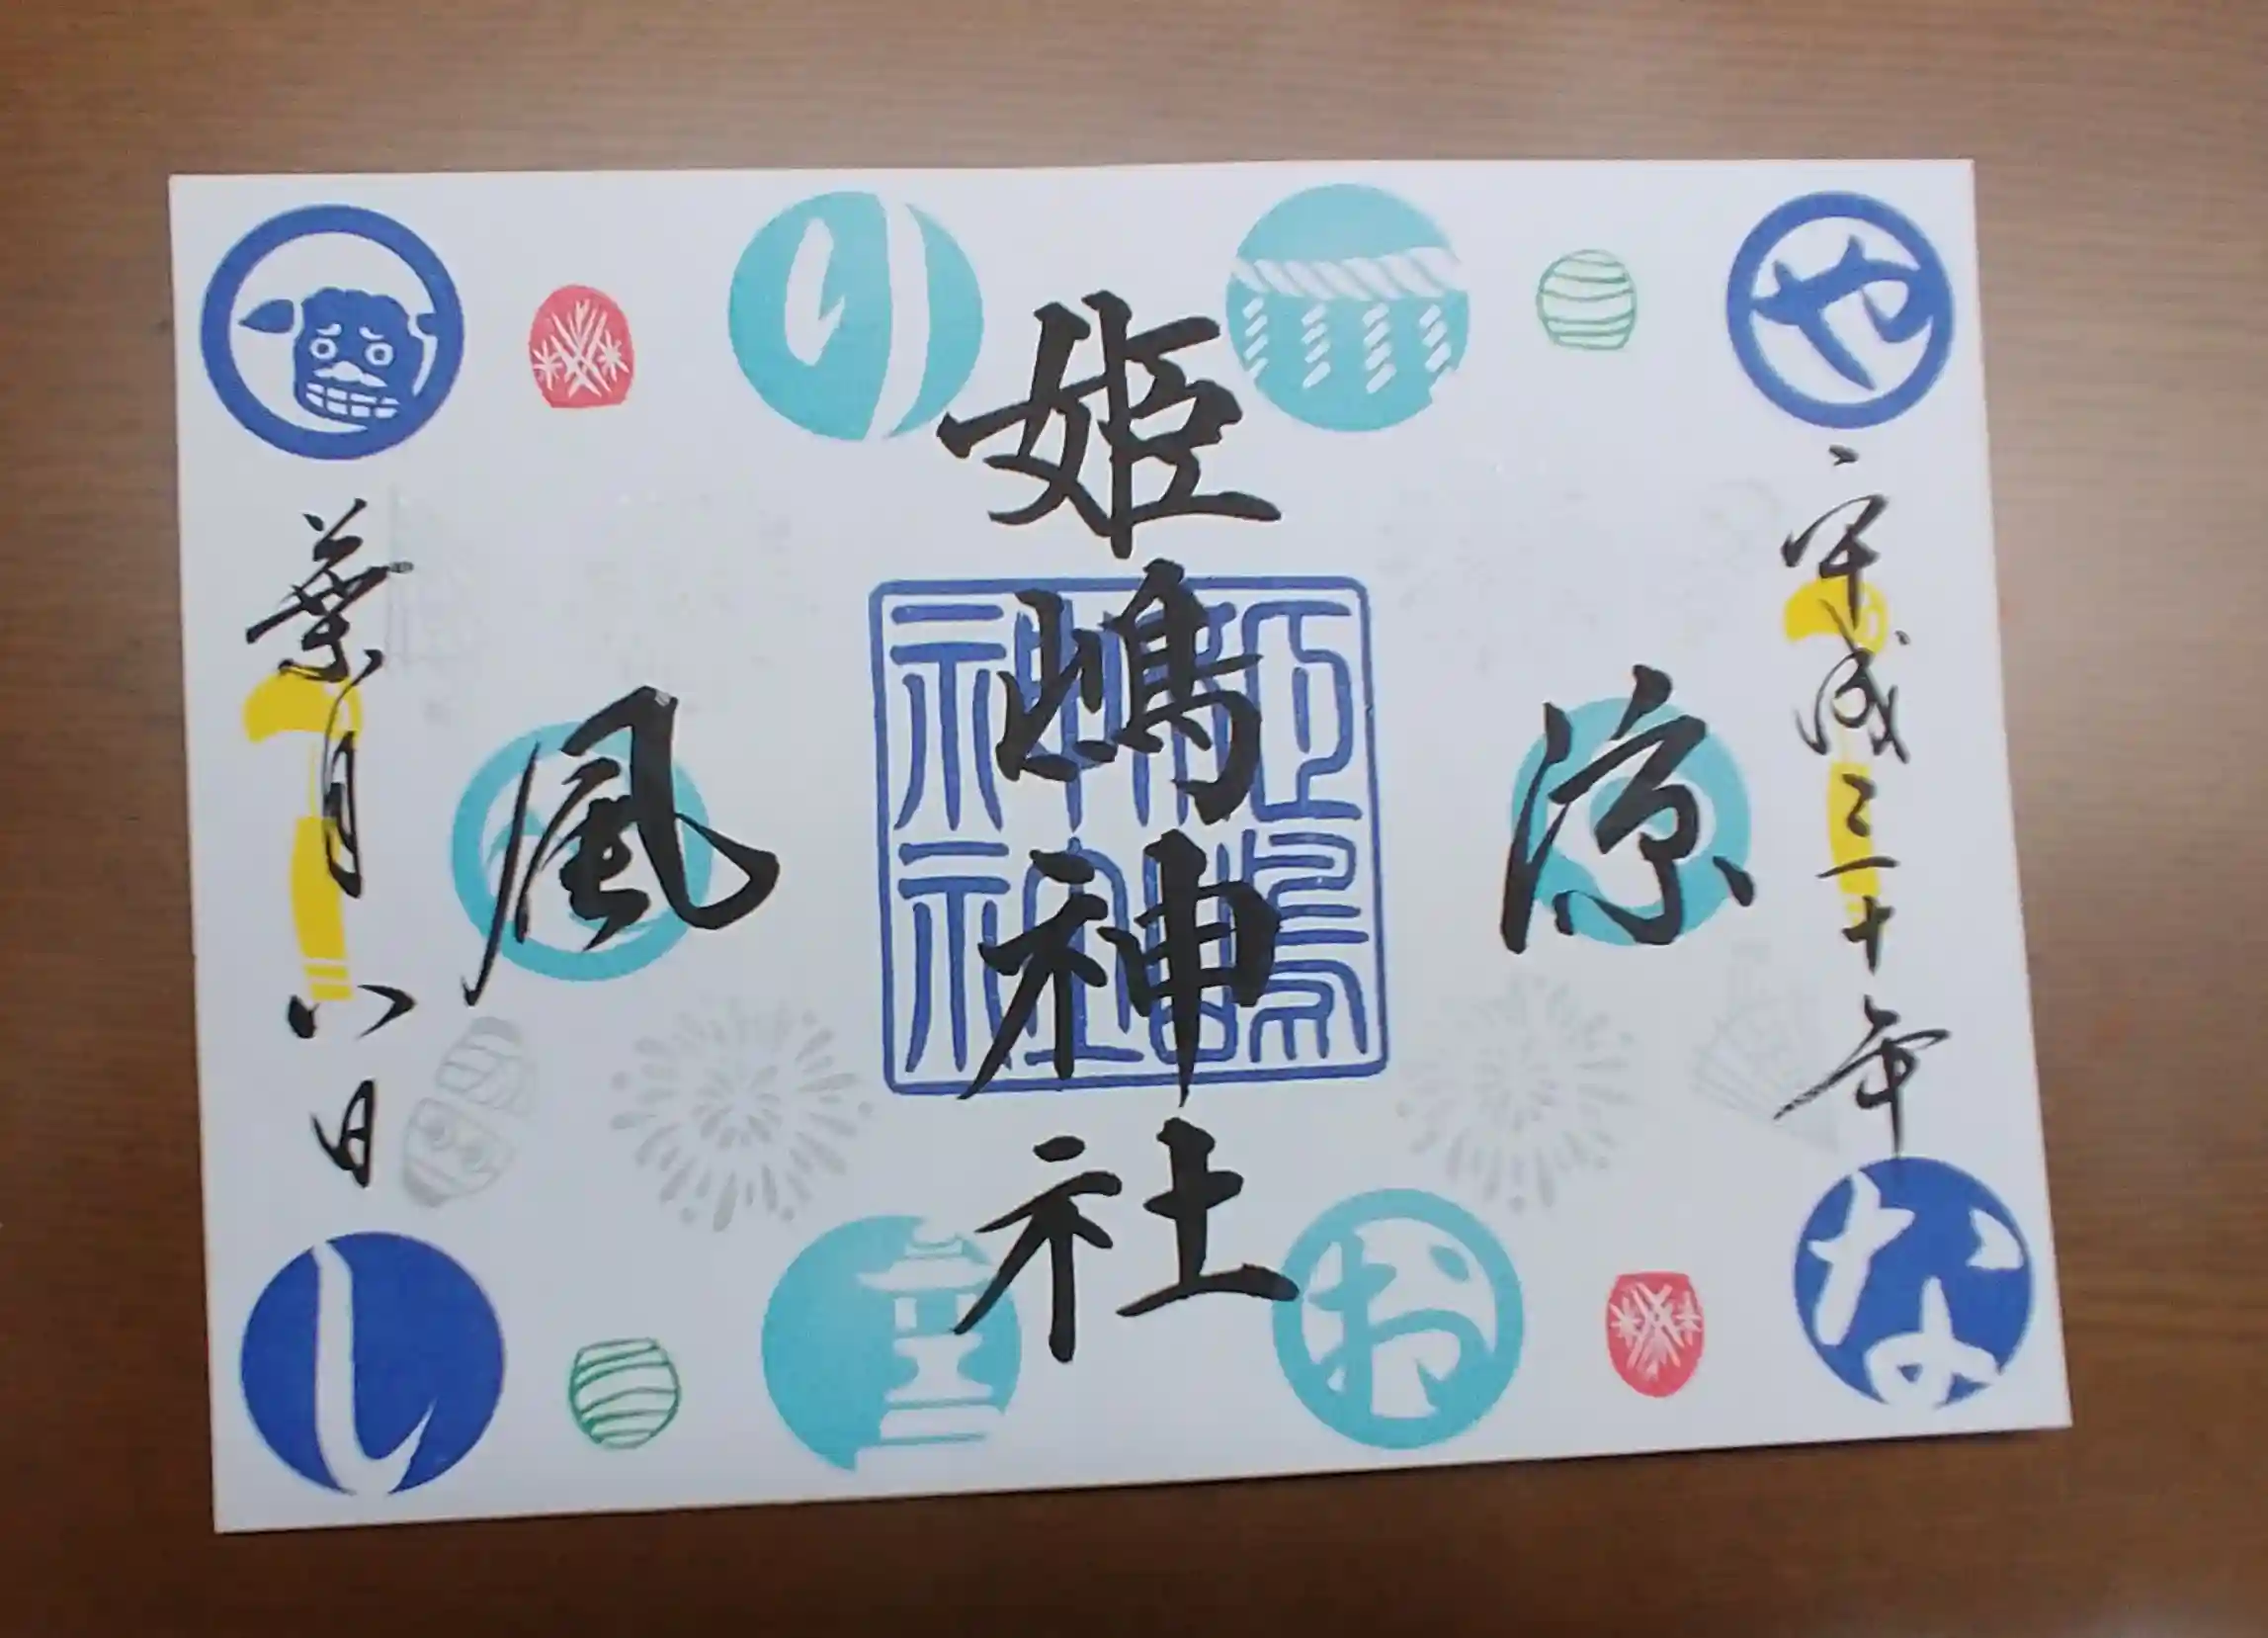 や
平成三十年
な
涼
お
姫嶋神社
姫嶋神社
り
風
葉月八日
し